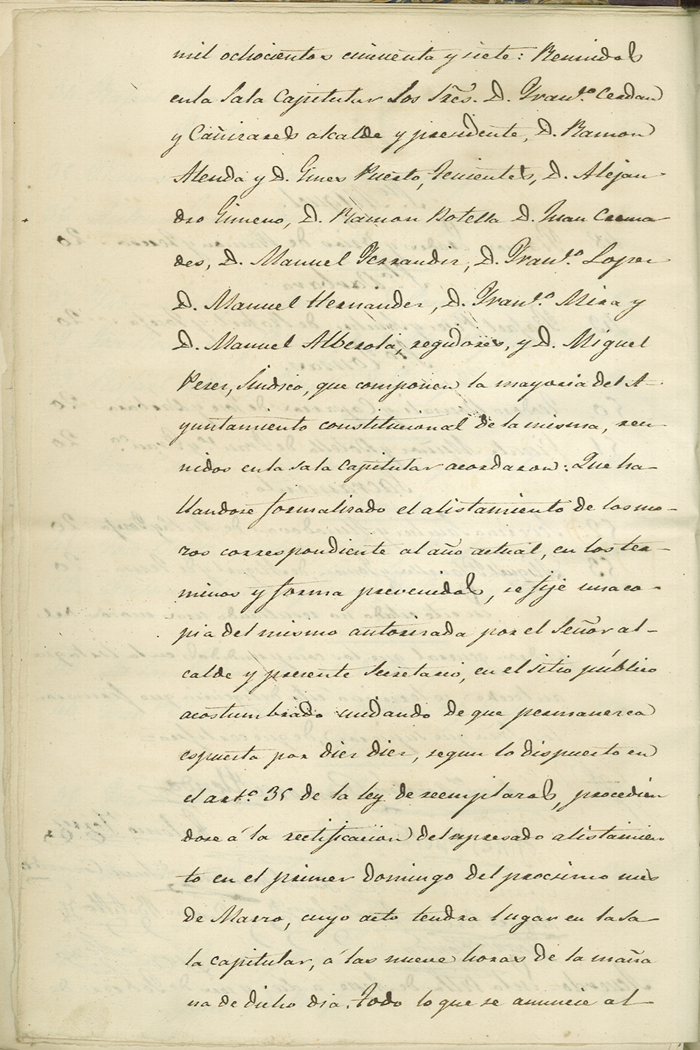 mil ochocientos cincuenta y siete: Reunidos
en la Sala Capitular los Sres. D. Franco. Cerdan
y Cañizares alcalde y presidente, D. Ramon
Alenda y D. Gines Puerto, Tenientes, D. Alejan-
dro Gimeno, D. Ramon Botella D. Juan Crema-
des, D. Manuel Ferrandiz, D. Franco. Lopez
D. Manuel Hernandez, D. Franco. Mira y
D. Manuel Alberola, regidores, y D. Miguel
Perez, Sindico, que componen la mayoria del A-
yuntamiento constitucional de la misma, reu-
nidos en la sala capitular acordaron: Que ha-
llandose formalizado el alistamiento de los mo-
zos correspondiente al año actual, en los ter-
minos y forma prevenidos, se fije una co-
pia del mismo autorizada por el Señor al-
calde y presente Secretario, en el sitio público
acostumbrado cuidando de que permanezca
espuesta por diez dias, segun lo dispuesto en
el arto. 35 de la ley de reemplazos, procedien
dose á la rectificacion del espresado alistamien-
to en el primer domingo del procsimo mes
de Marzo, cuyo acto tendra lugar en la sa-
la capitular, á las nueve horas de la maña
na de dicho dia. Todo lo que se anuncie al